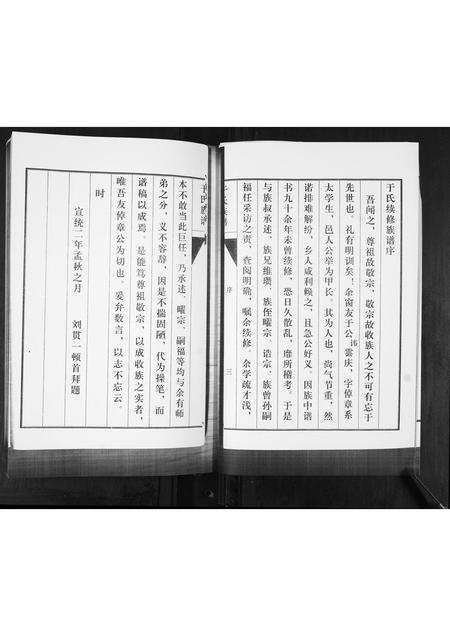 于氏续修族谱序
吾闻之，尊祖故敬宗，敬宗故收族人之不可有忘于
先世也。礼有明训矣！余窗友于公讳云庆，字悼章系
太学生，邑人公举为甲长。其为人也，尚气节重，然
诺排难解纷，乡人咸利赖之，且急公好义。因族中谱
书九十余年未曾续修，恐日久散乱，靡所稽考。于是
与族叔承述、族兄维瓒、族侄曜宗、诰宗、族曾孙嗣
福任采访之责，查阅明确，嘱余续修。余学疏才浅，
于氏族谱
序
三
于氏族谱
本不敢当此巨任，乃承述、曜宗、嗣福等均与余有师
弟之分，义不容辞，因是不揣固陋，代为操笔，而
谱稿以成焉。是能笃尊祖敬宗，以成收族之实者，
唯吾友悼章公为切也。爰弁数言，以志不忘云。
时
宣统二年孟秋之月
刘贯一顿首拜题